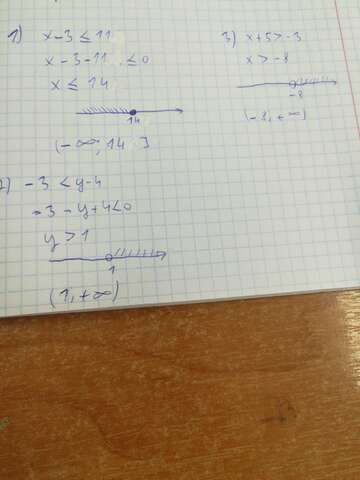 1) x-3 ≤ 11
x-3-11 ≤ 0
x ≤ 14
14
(-∞; 14]
2) -3 < y-4
-3-y+4<0
y > 1
1
(1, +∞)
3) x+5 > -3
x > -8
-8
(-8, +∞)